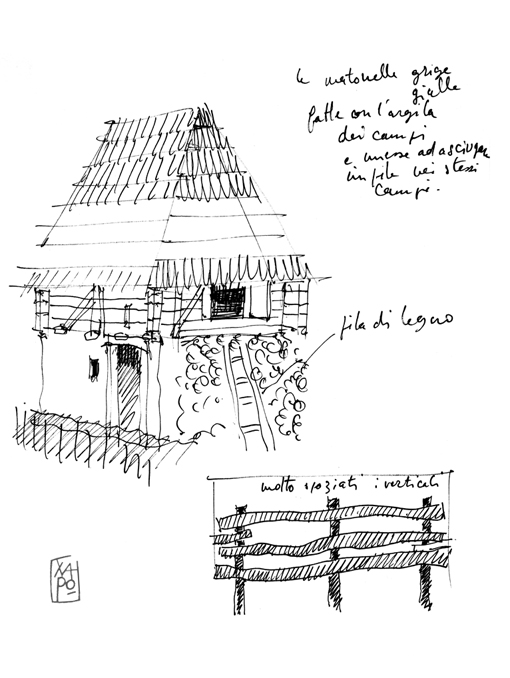 le matonelle grige
gialle
fatte con l'argila
dei campi
e messe ad asciugare
in file nei stessi
campi.
fila di legno
molto spaziati i verticali
XA
PO